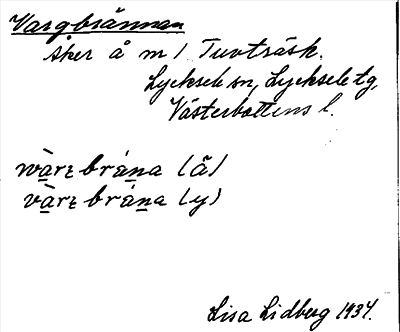 Vargbrännan
åker å m / Tuvträsk.
Lycksele sn, Lycksele tg,
Västerbottens l.
wàrᶎbrána (ã)
vàrᶎbrána (y)
Lisa Lidberg 1934.